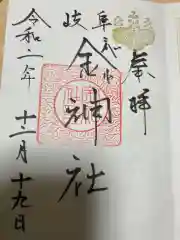 奉拝
岐阜
金神社
令和二年
十二月十九日